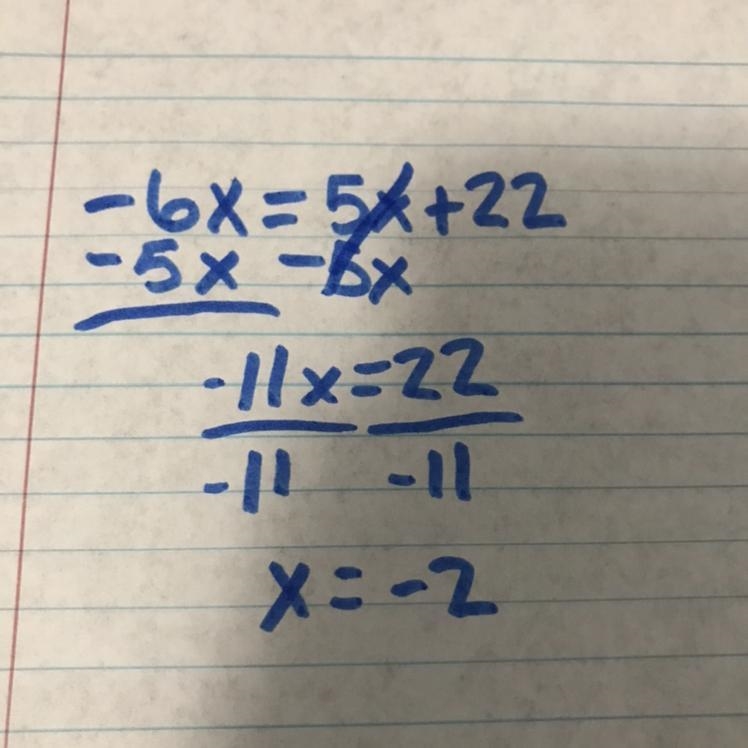 -6x=5x+22
-5x -5x
-11x=22
-11 -11
x=-2